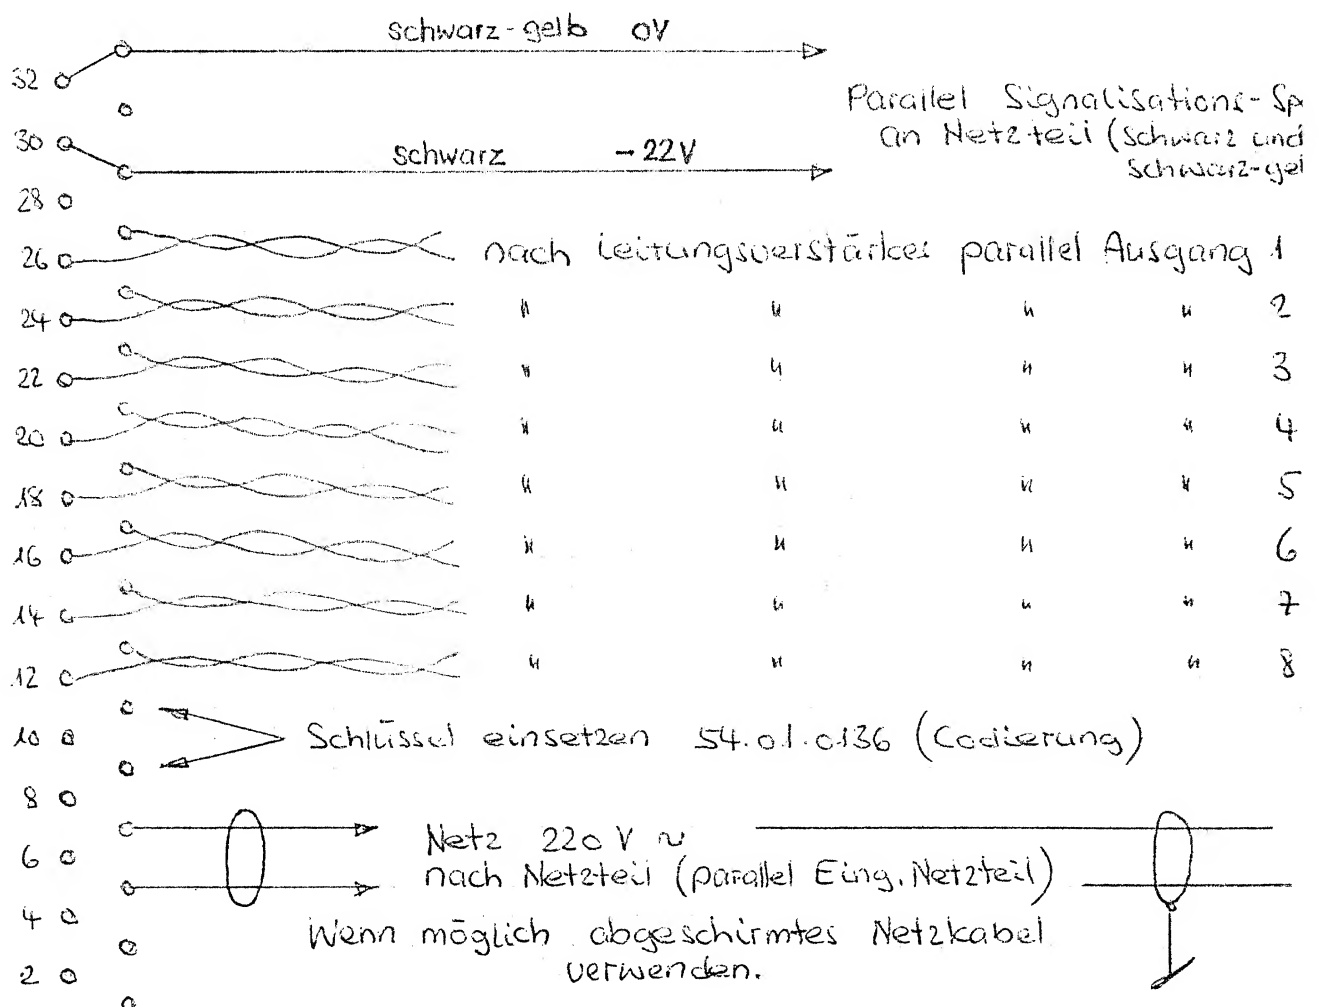 schwarz-gelb 0V
32
Parallel Signalisations-Sp
an Netzteil (schwarz und
schwarz-gel
30
schwarz -22V
28
26 nach Leitungsverstärker parallel Ausgang 1
24 " " " " 2
22 " " " " 3
20 " " " " 4
18 " " " " 5
16 " " " " 6
14 " " " " 7
12 " " " " 8
10 Schlüssel einsetzen 54.01.0136 (Codierung)
8
Netz 220 V ~
6
nach Netzteil (parallel Eing. Netzteil)
4
Wenn möglich abgeschirmtes Netzkabel
2 verwenden.